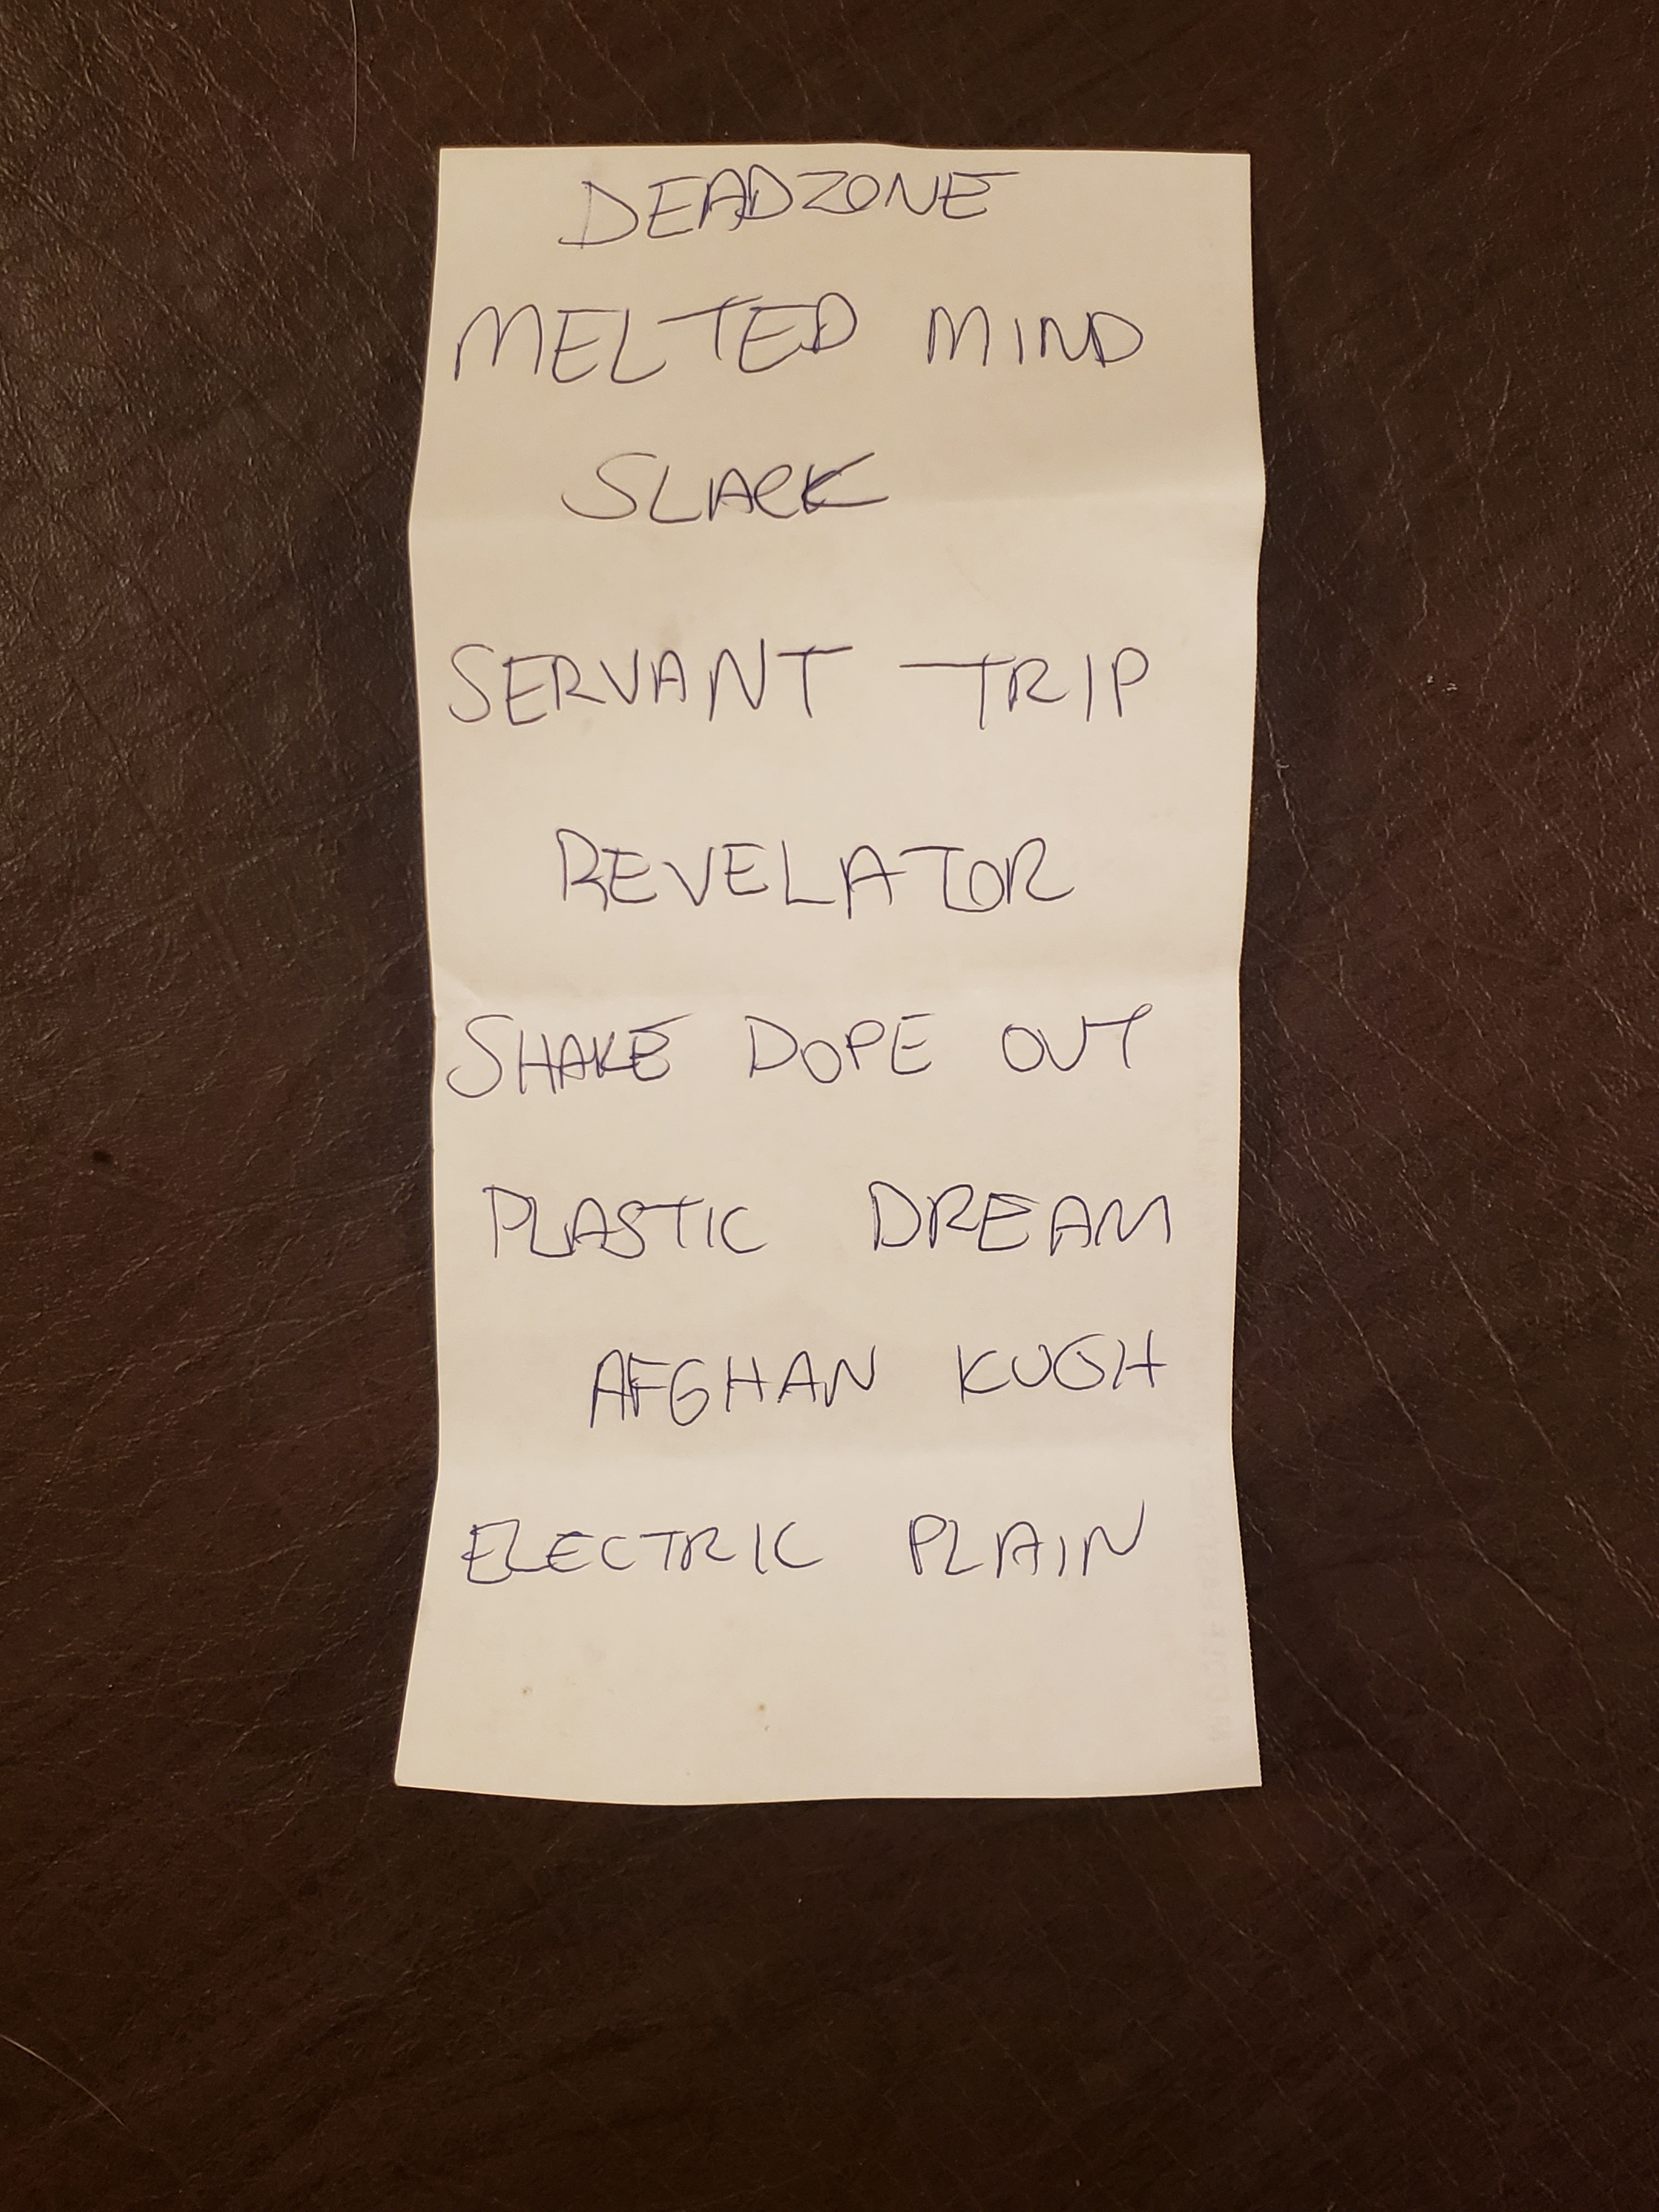 DEADZONE
MELTED MIND
SLACK
SERVANT TRIP
REVELATOR
SHAKE DOPE OUT
PLASTIC DREAM
AFGHAN KUSH
ELECTRIC PLAIN